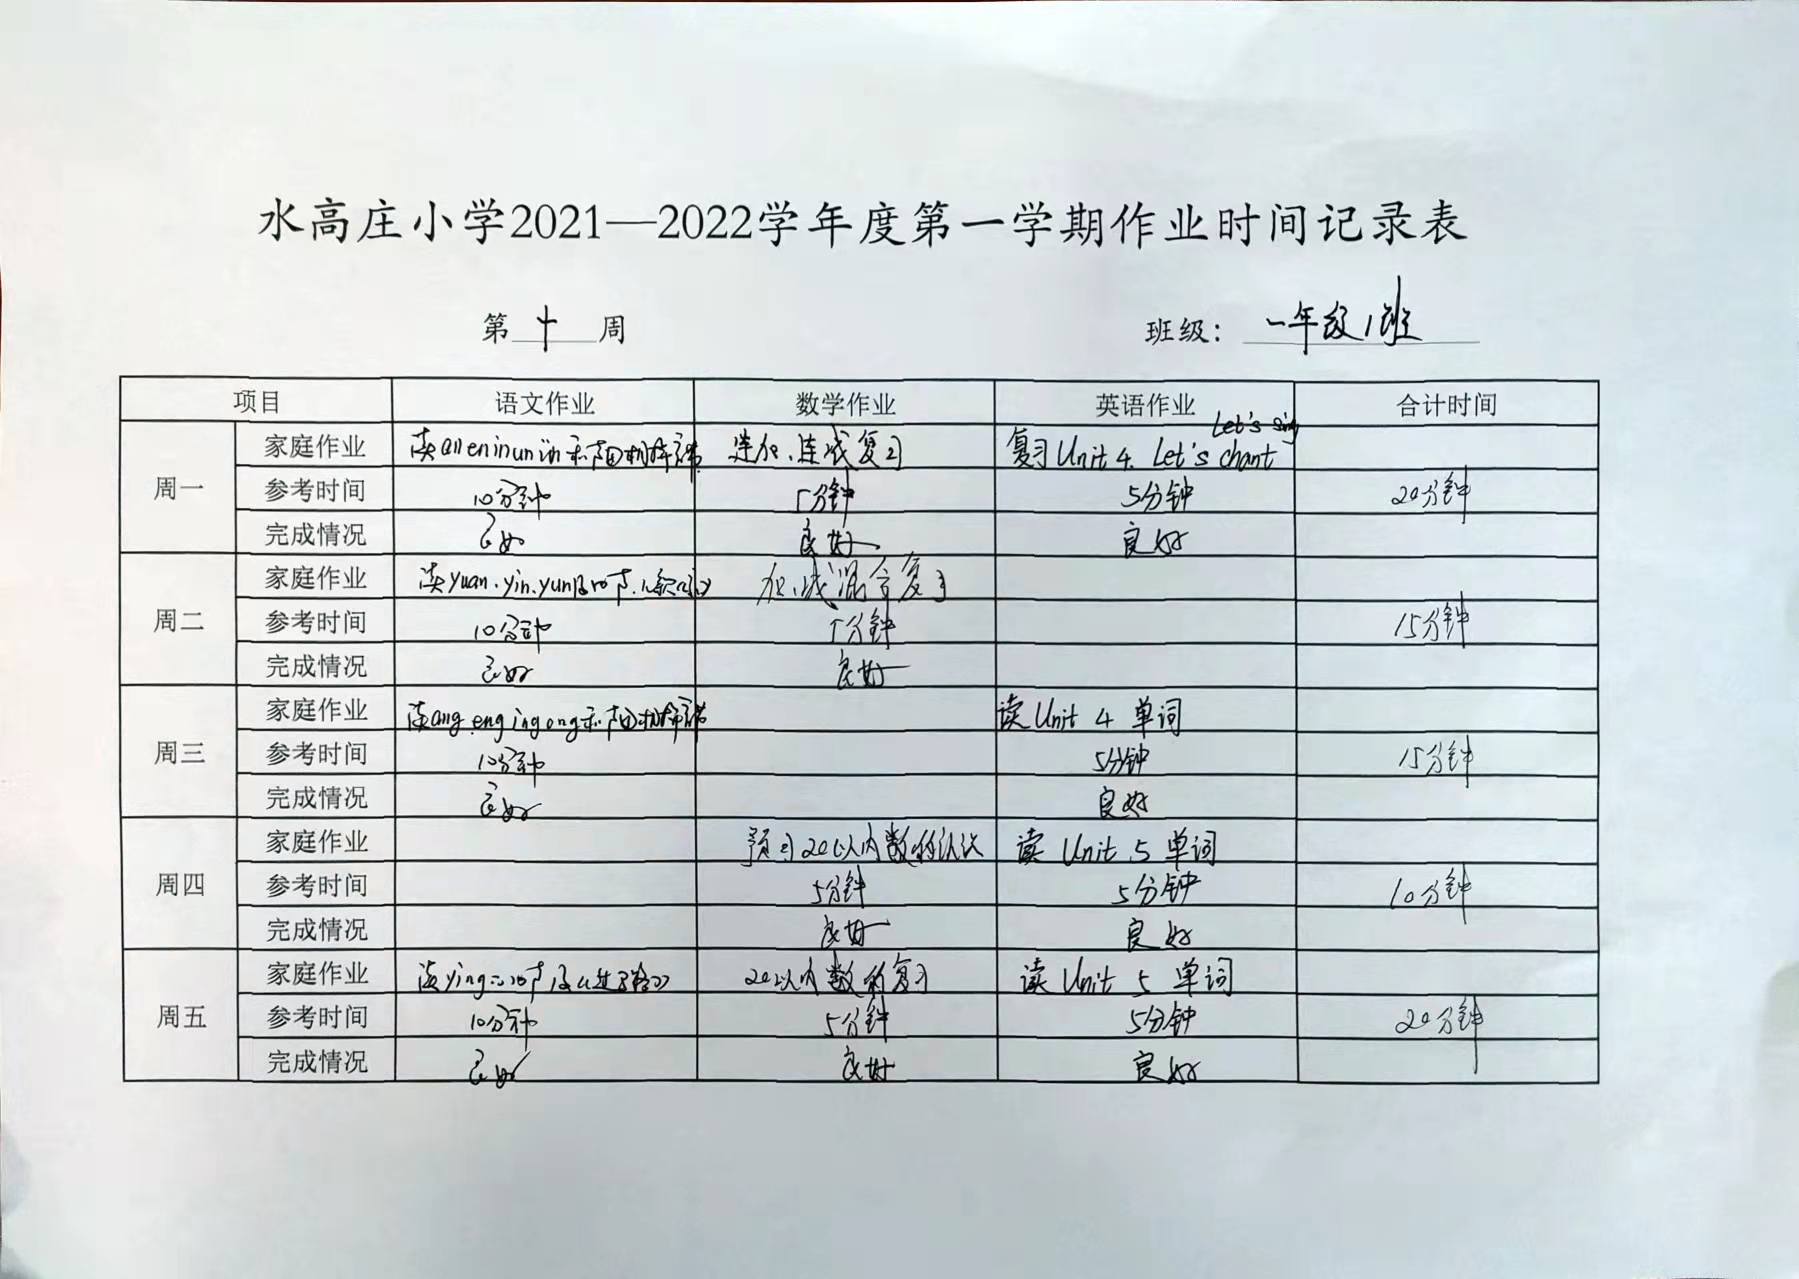 水高庄小学2021—2022学年度第一学期作业时间记录表
第十周 班级：一年级1班
项目 语文作业 数学作业 英语作业 合计时间
周一 家庭作业 读an en in un ün和声母相拼音节 连加、连减复习 复习Unit 4. Let's chant Let's sing
参考时间 10分钟 5分钟 5分钟 20分钟
完成情况 良好 良好 良好
周二 家庭作业 读yuan.yin.yun 加、减混合复习
参考时间 10分钟 5分钟 15分钟
完成情况 良好 良好
周三 家庭作业 读ang eng ing ong和声母相拼音节 读Unit 4 单词
参考时间 10分钟 5分钟 15分钟
完成情况 良好 良好
周四 家庭作业 预习20以内数的认识 读 Unit 5 单词
参考时间 5分钟 5分钟 10分钟
完成情况 良好 良好
周五 家庭作业 读ying 20以内数的复习 读 Unit 5 单词
参考时间 10分钟 5分钟 5分钟 20分钟
完成情况 良好 良好 良好